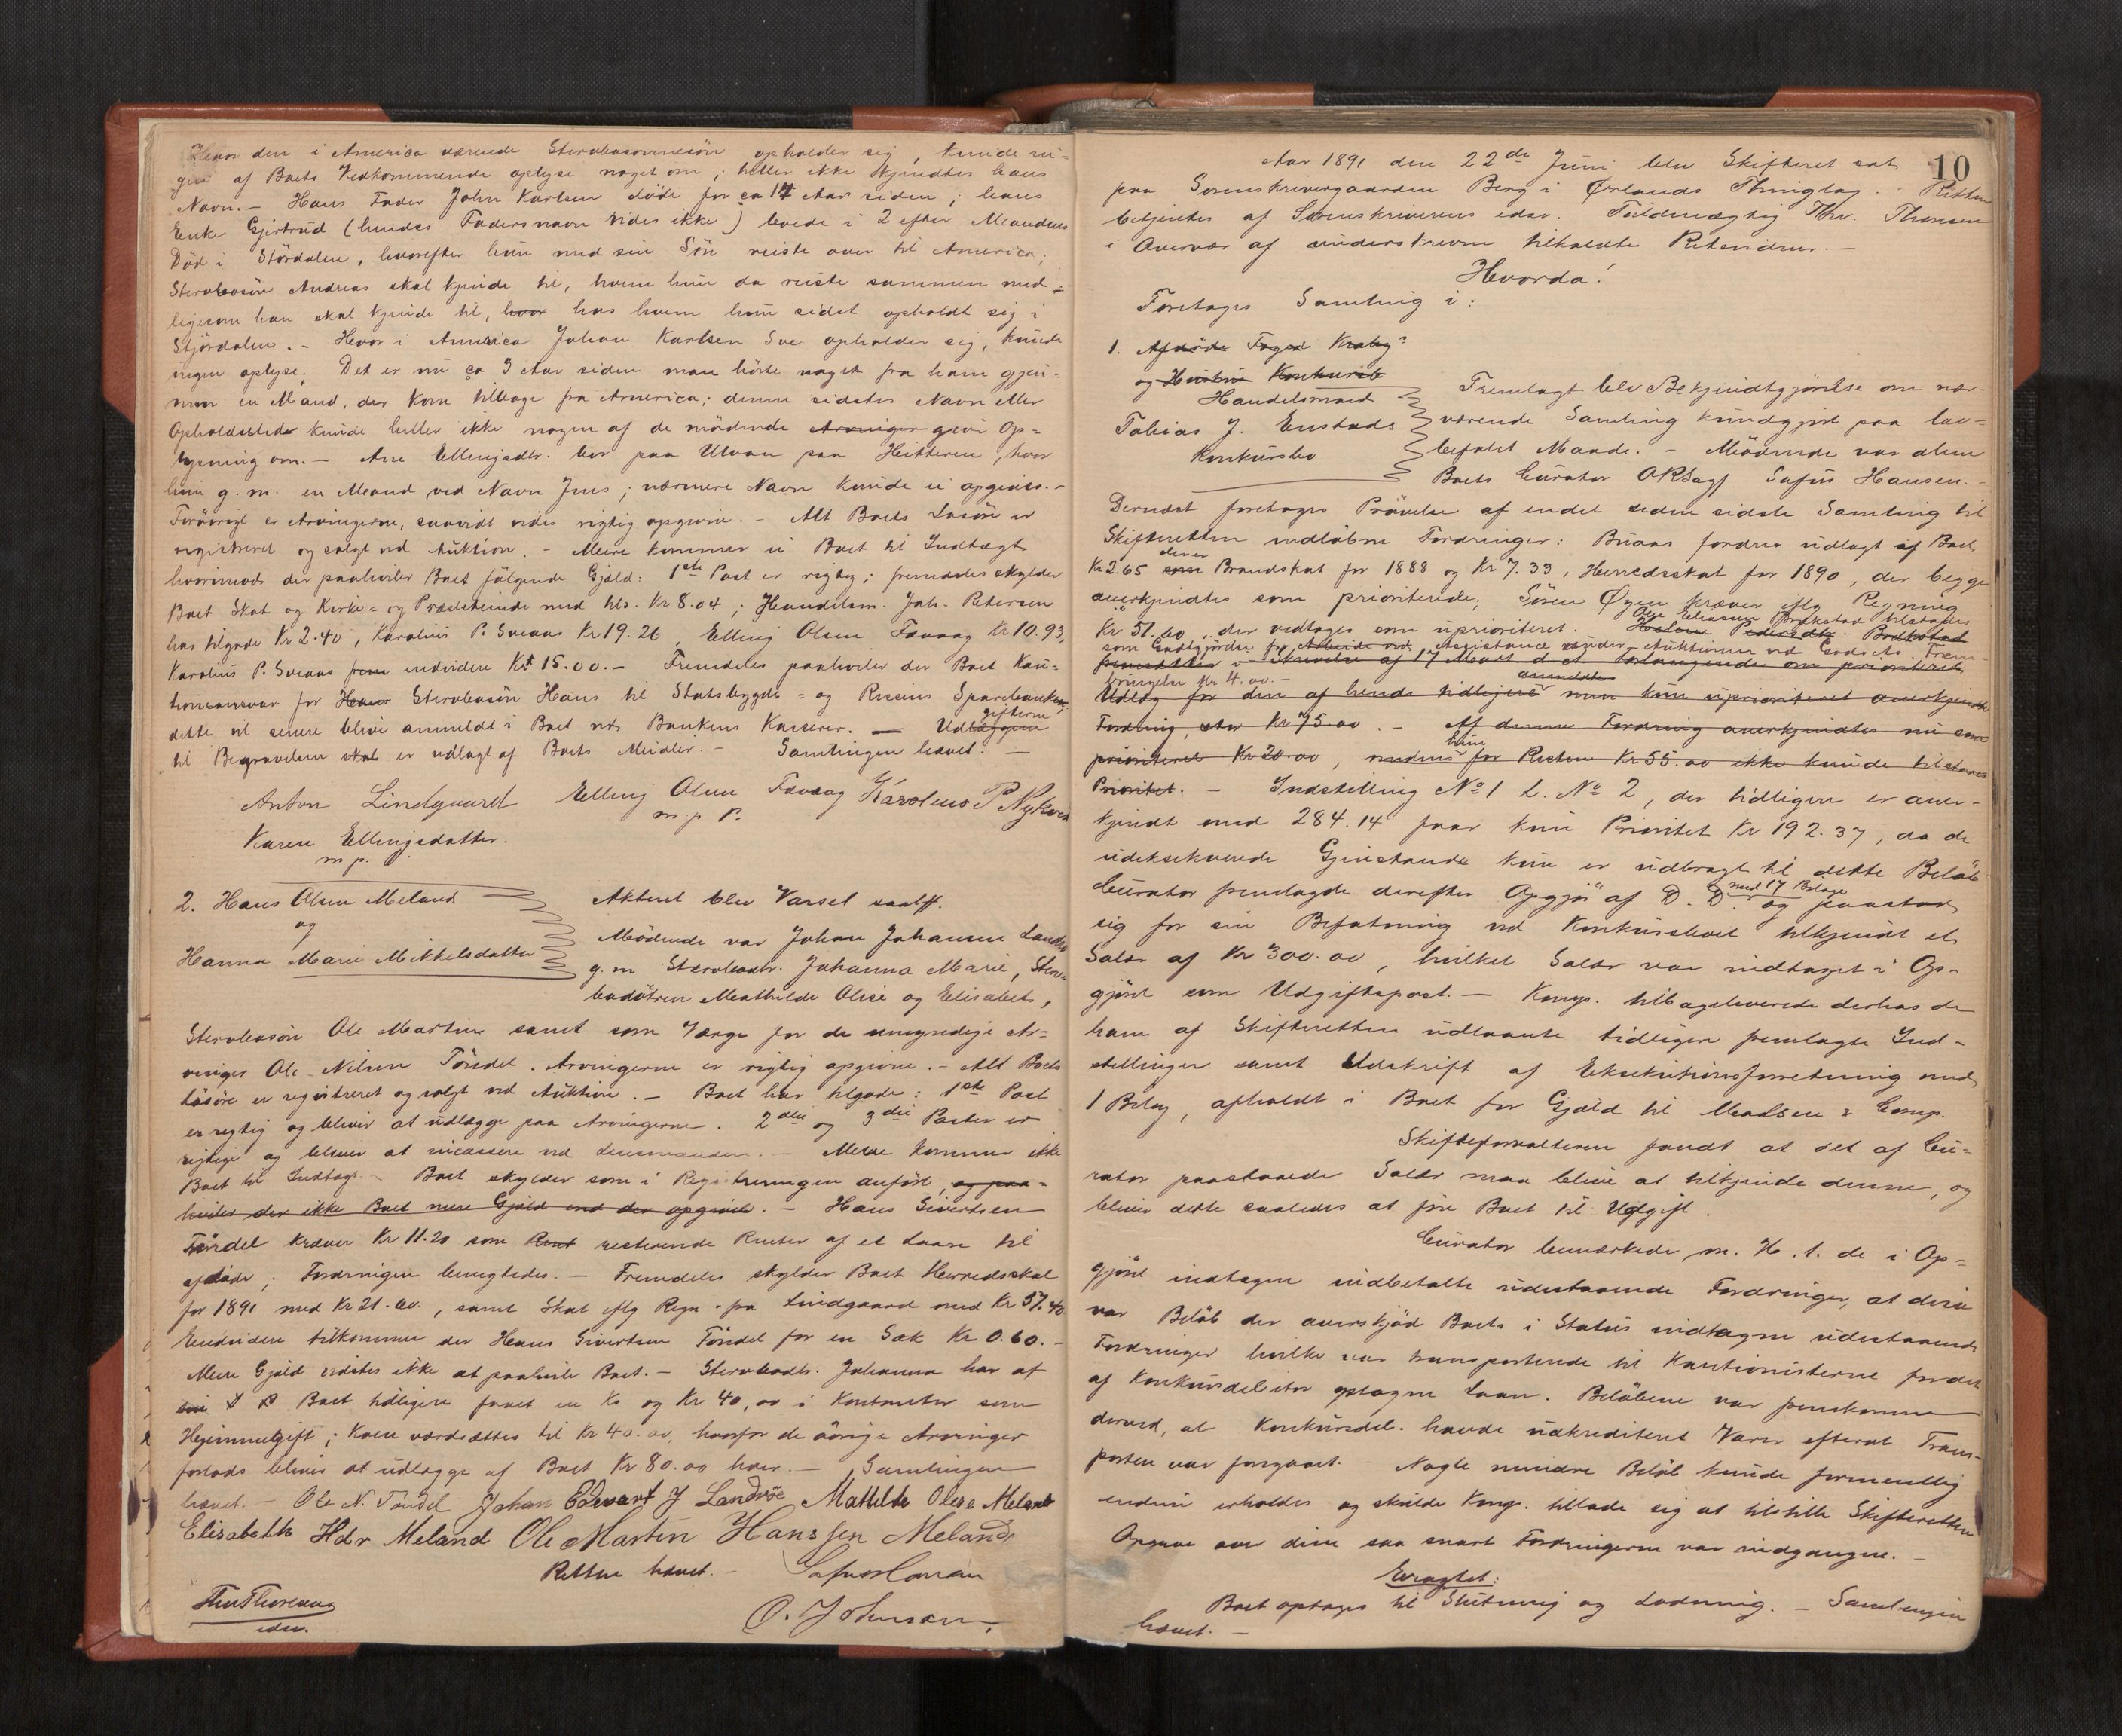 Hvor den i America værende Stervbosønnesøn opholder sig, kunde in-
gen af Boets Vedkommende oplyse noget om; heller ikke kjendtes hans
Navn. - Hans Fader John Karlsen døde for ca 14 Aar siden; hans
Enke Gjertrud (hendes Fadersnavn vides ikke) boede i 2 efter Mandens
Död i Stördalen, hvorefter hun med sin Sön reiste over til America;
Stervbosön Andreas skal kjende til, hvem hun da reiste sammen med
ligesom han skal kjende til, hvor hos hvem hun sidst opholdt sig i
Stjördalen. - Hvor i America Johan Karlsen Sve opholder sig, kunde
ingen oplyse; Det er nu ca 3 Aar siden man hörte noget fra ham gjen-
nem en Mand, der kom tilbage fra America; denne sidstes Navn eller
Opholdssted kunde heller ikke nogen af de mödende Arvinger give Op-
lysning om. - Ane Ellingsdtr. bor paa Ulvan paa Hitteren, hvor
hun g. m. en Mand ved Navn Jens; nærmere Navn kunde ei opgives. -
Forövrigt er Arvingerne, saavidt vides rigtig opgivne. - Alt Boets Lösöre er
registreret og solgt ved Auktion. - Mere kommer ei Boet til Indtægt
hvorimod der paahviler Boet fölgende Gjæld: 1ste Post er rigtig; fremdeles skylder
Boet Skat og Kirke- og Præsteteinde med tils. Kr 8.04; Handelsm. Joh. Petersen
har tilgode Kr 2.40, Karolius P. Sveaas Kr 19.26, Elling Olsen Fævaag Kr 10.93,
Karolius P. Sveaas endvidere Kr 15.00. - Fremdeles paahviler der Boet Kau-
tionsansvar for Stervbosön Hans til Statsbygds- og Rissens Sparebanker,
dette vil senere blive anmeldt i Boet ved Bankens Kasserer. - Udgifterne
til Begravelsen er udlagt af Boets Midler. - Samlingen hævet. -
Anton Lindgaard Elling Olsen Fævaag Karolius P Nyhren
m. p. P.
Karen Ellingsdatter.
m. p.
2. Hans Olsen Meland
og
Hanna Marie Mikkelsdatter
Akteret blev Varsel saalff.
Mödende var Johan Johansen Landrö
g. m Stervbodtr. Johanna Marie, Sterv-
bodötren Mathilde Olise og Elisabet,
Stervbosön Ole Martin samt som Værge for de umyndige Ar-
vinger Ole Nilsen Töndel. Arvingerne er rigtig opgivne. - Alt Boets
Lösöre er registreret og solgt ved Auktion. - Boet har tilgode: 1ste Post
er rigtig og bliver at udlægge paa Arvingerne. 2den og 3die Poster er
rigtige og bliver at incassere ved Lensmanden. - Mere kommer ikke
Boet til Indtægt. - Boet skylder som i Registreringen anfört og paa-
hviler der ikke Boet mere Gjæld end der opgivet. - Hans Sivertsen
Töndel kræver Kr 11.20 som resterende Renter af et Laan til
afdöde; Fordringen benegtedes. - Fremdeles skylder Boet Herredsskat
for 1891 med Kr 21.60, samt Skat iflg Regn. fra Lindgaard med Kr 57.40
Endvidere tilkommer der Hans Sivertsen Töndel for en Sæk Kr 0.60. -
Mere Gjæld vidstes ikke at paahvile Boet. - Stervbodtr. Johanna har af
Boet tidligere faaet en Ko og Kr 40,00 i Kontanter som
Hjemmegift; Koen værdsættes til Kr 40.00, hvorfor de övrige Arvinger
forlods bliver at udlægge af Boet Kr 80.00 hver. - Samlingen
hævet. - Ole N. Töndel Johan Edevart J Landröe Mathilde Olese Meland
Elisabeth Hdr Meland Ole Martin Hanssen Meland
Retten hævet. - Sofus Hansen
Thv Thoresen
edsv.
O. Johnsen,
10
Aar 1891 den 22de Juni blev Skifteret sat
paa Sorenskrivergaarden Berg i Ørlands Thinglag. - Retten
betjentes af Sorenskriverens edsv. Fuldmægtig Thv. Thoresen
i Overvær af underskrevne tilkaldte Retsvidner. -
Hvorda!
Foretages Samling i:
1. Afdöde Foged Kraby
og Hustrus Konkursb
Handelsmand
Tobias J. Enstads
Konkursbo
Fremlagt blev Bekjendtgjörelse om nær-
værende Samling kundgjort paa lov-
befalet Maade. - Mödende var alene
Boets Curator ORSagf Sofus Hansen. -
Dernæst foretages Prövelse af endel siden sidste Samling til
Skifteretten indlöbne Fordringer: Buaas fordrer udlagt af Boet
Kr 2.65 som der er Brandskat for 1888 og Kr 7.33, Herredsskat for 1890, der begge
anerkjendtes som prioriterede; Sören Øyen kræver iflg Regning
Kr 51.60, der vedtages som uprioriteret. Helene Pedersdtr. Brækstad Ole Eliassen Brækstad tilstaaes
som Godtgjörelse for Arbeide ved Assistance under Auktionen ved Godsets Frem-
fremsætter i Skrivelse af 17 Marts d. A. Forlangende om prioriteret
bringelse Kr 4.00. -
Udlæg for den af hende tidligere anmeldte men kun uprioriteret anerkjendte
Fordring, stor Kr 75.00. - Af denne Fordring anerkjendtes nu som
prioriteret Kr 20.00, medens hun for Resten Kr 55.00 ikke kunde tilstaaes
Prioritet. - Indstilling No 1 L. No 2, der tidligere er aner-
kjendt med 284.14 faar kun Prioritet Kr 192.37, da de
udeksekverede Gjenstande kun er udbragt til dette Belöb
Curator fremlagde derefter Opgjör af D. D. med 17 Bilage og paastod
sig for sin Befatning ved Konkursboet tilkjendt et
Salær af Kr 300.00, hvilket Salær var indtaget i Op-
gjöret som Udgiftspost. - Komp. tilbageleverede derhos de
ham af Skifteretten udlaante tidligere fremlagte Ind-
stillinger samt Udskrift af Eksekutionsforretning med
1 Bilag, afholdt i Boet for Gjæld til Madsen & Comp.
Skifteforvalteren fandt at det af Cu-
rator paastaaede Salær maa blive at tilkjende denne, og
bliver dette saaledes at före Boet til Udgift.
Curator bemærkede m. H. t. de i Op-
gjöret indtagne indbetalte udestaaende Fordringer, at disse
var Belöb der overskjöd Boets i Status indtagne udestaaende
Fordringer hvilke var transporterede til Kautionisterne for det
af Konkursdebitor optagne Laan. Belöbene var fremkomne
derved, at Konkursdeb. havde udkrediteret Varer efterat Trans-
porten var foregaaet. - Nogle mindre Belöb kunde formentlig
endnu erholdes og skulde Komp. tillade sig at tilstille Skifteretten
Opgave over disse saa snart Fordringerne var indgangne. -
Eragtet:
Boet optages til Slutning og Lodning. - Samlingen
hævet. -